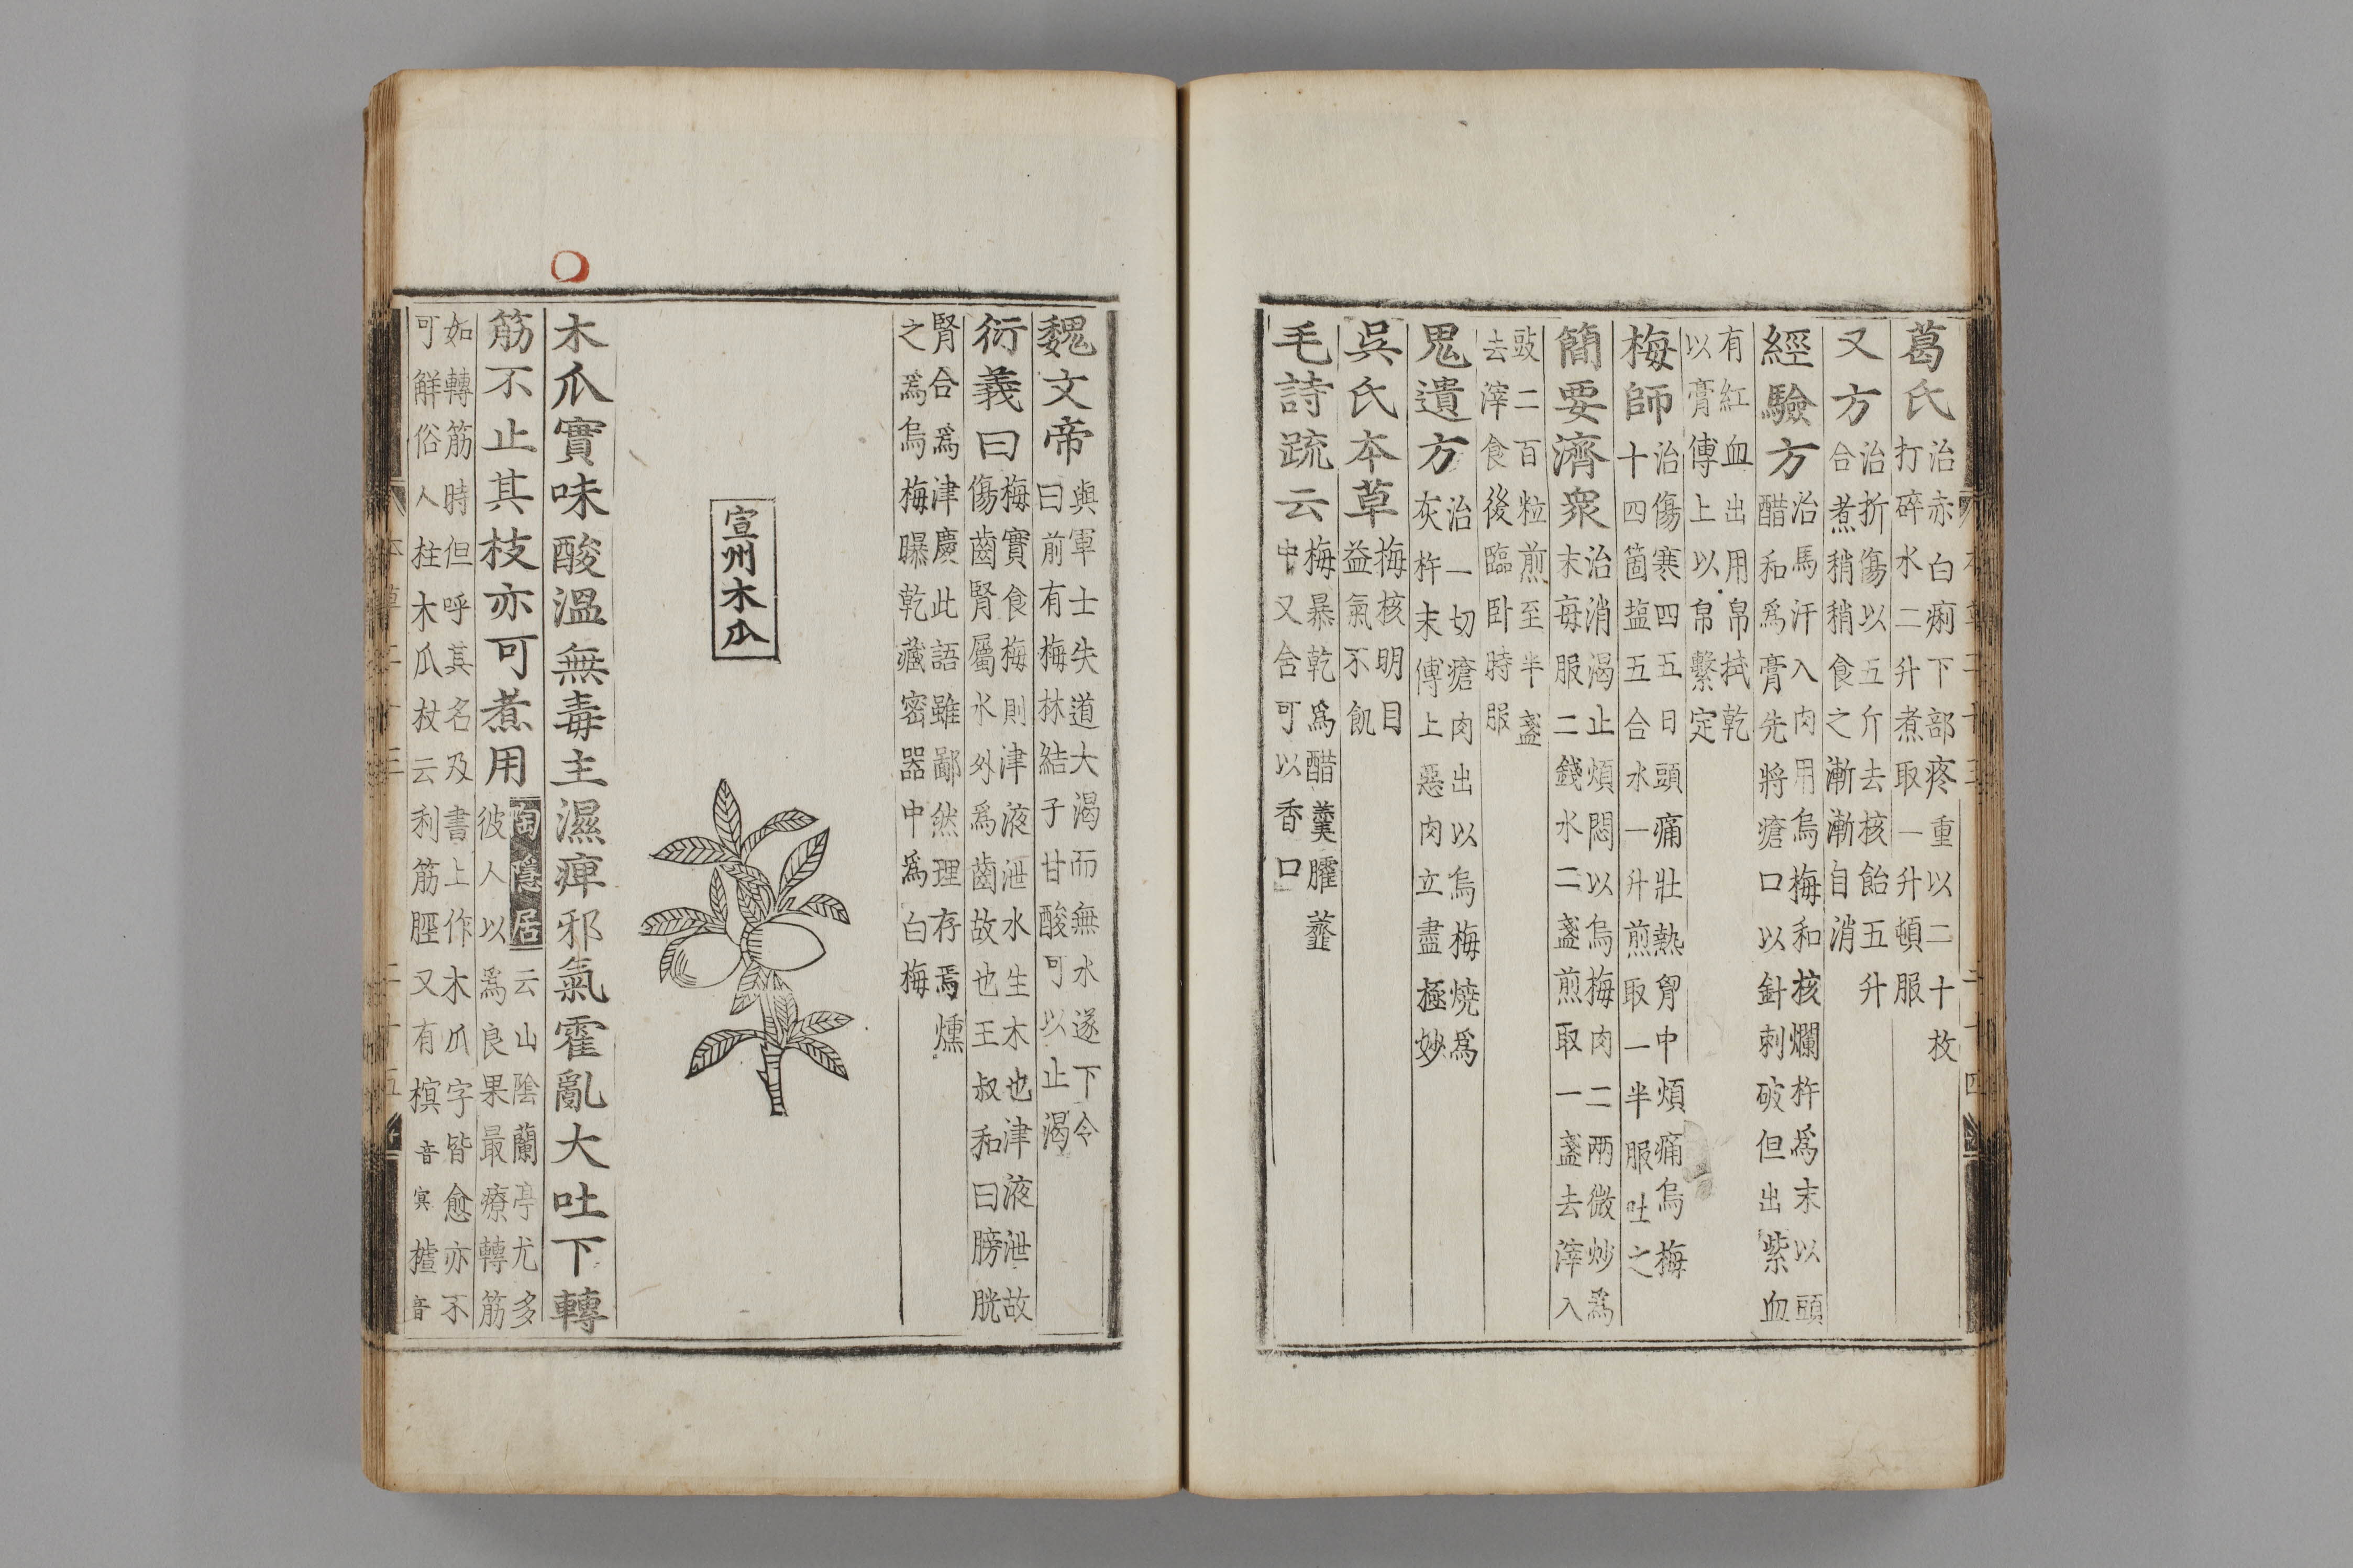 葛氏治赤白痢下部疼重以二十枚
打碎水二升煮取一升頓服
又方治折傷以五斤去核飴五升
合煮稍稍食之漸漸自消
經驗方治馬汗入肉用烏梅和核爛杵爲末以頭
醋和爲膏先將瘡口以針刺破但出紫血
有紅血出用帛拭乾
以膏傅上以帛繫定
梅師治傷寒四五日頭痛壯熱胷中煩痛烏梅
十四箇塩五合水一升煎取一半服吐之
簡要濟衆治消渴止煩悶以烏梅肉二兩微炒爲
末每服二錢水二盞煎取一盞去滓入
豉二百粒煎至半盞
去滓食後臨卧時服
鬼遺方治一切瘡肉出以烏梅燒爲
灰杵末傅上惡肉立盡極妙
吳氏本草梅核明目
益氣不飢
毛詩疏云梅暴乾爲醋羹臛虀
中又含可以香口
魏文帝與軍士失道大渴而無水遂下令
曰前有梅林結子甘酸可以止渴
衍義曰梅實食梅則津液泄水生木也津液泄故
傷齒腎屬水外爲齒故也王叔和曰膀胱
腎合爲津慶此語雖鄙然理存焉燻
之爲烏梅曝乾藏密器中爲白梅
宣州木瓜
木瓜實味酸溫無毒主濕痺邪氣霍亂大吐下轉
筋不止其枝亦可煮用
陶隱居云山陰蘭亭尤多
彼人以爲良果最療轉筋
如轉筋時但呼其名及書上作木瓜字皆愈亦不
可觧俗人柱木瓜杖云利筋脛又有榠音㝠樝音
本草二十三
二十五